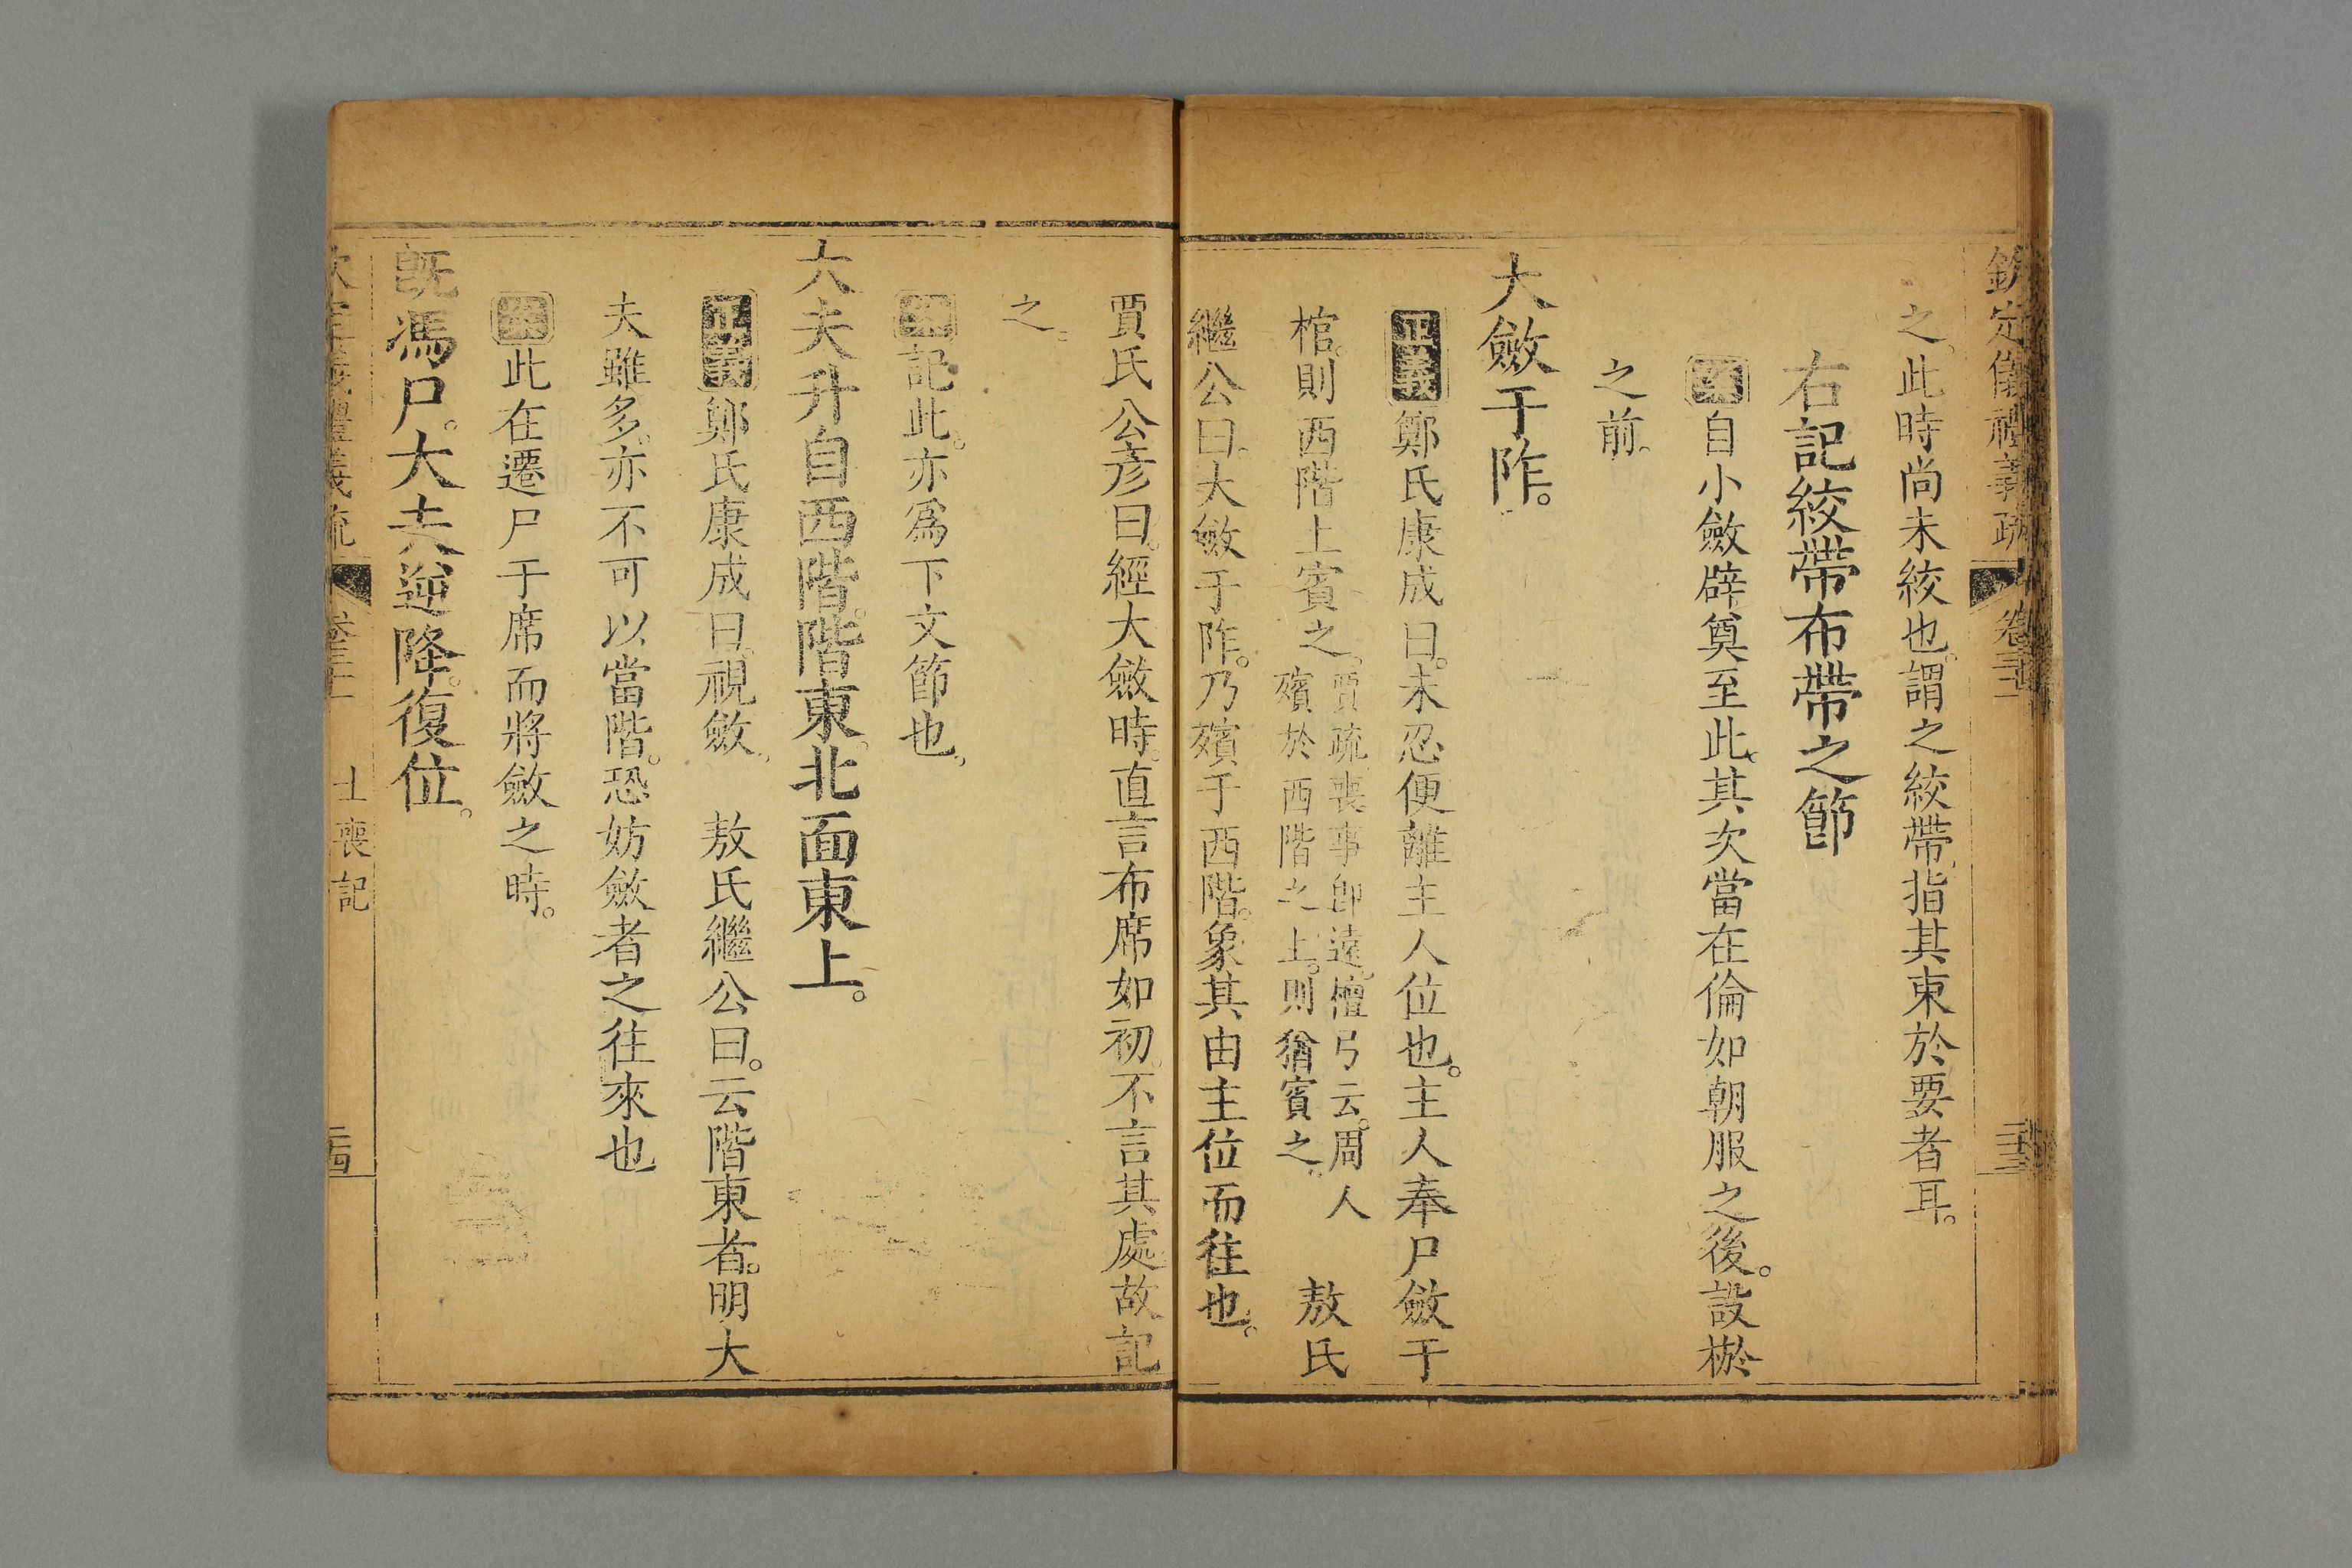 欽定儀禮義疏 卷三十一
之。此時尚未絞也。謂之絞帶。指其束於要者耳。
右記絞帶布帶之節
案自小斂辟奠至此。其次當在倫如朝服之後。設棜
之前。
大斂于阼。
正義鄭氏康成曰。未忍便離主人位也。主人奉尸斂于
棺。則西階上賓之。賈疏喪事即遠。檀弓云。周人殯於西階之上。則猶賓之。 敖氏
繼公曰。大斂于阼。乃殯于西階。象其由主位而往也。
賈氏公彥曰。經大斂時。直言布席如初。不言其處。故記
之。
案記此。亦爲下文節也。
大夫升自西階。階東。北面東上。
正義鄭氏康成曰。視斂。 敖氏繼公曰。云階東者。明大
夫雖多。亦不可以當階。恐妨斂者之往來也
案此在遷尸于席而將斂之時。
既馮尸。大夫逆降。復位。
士喪記